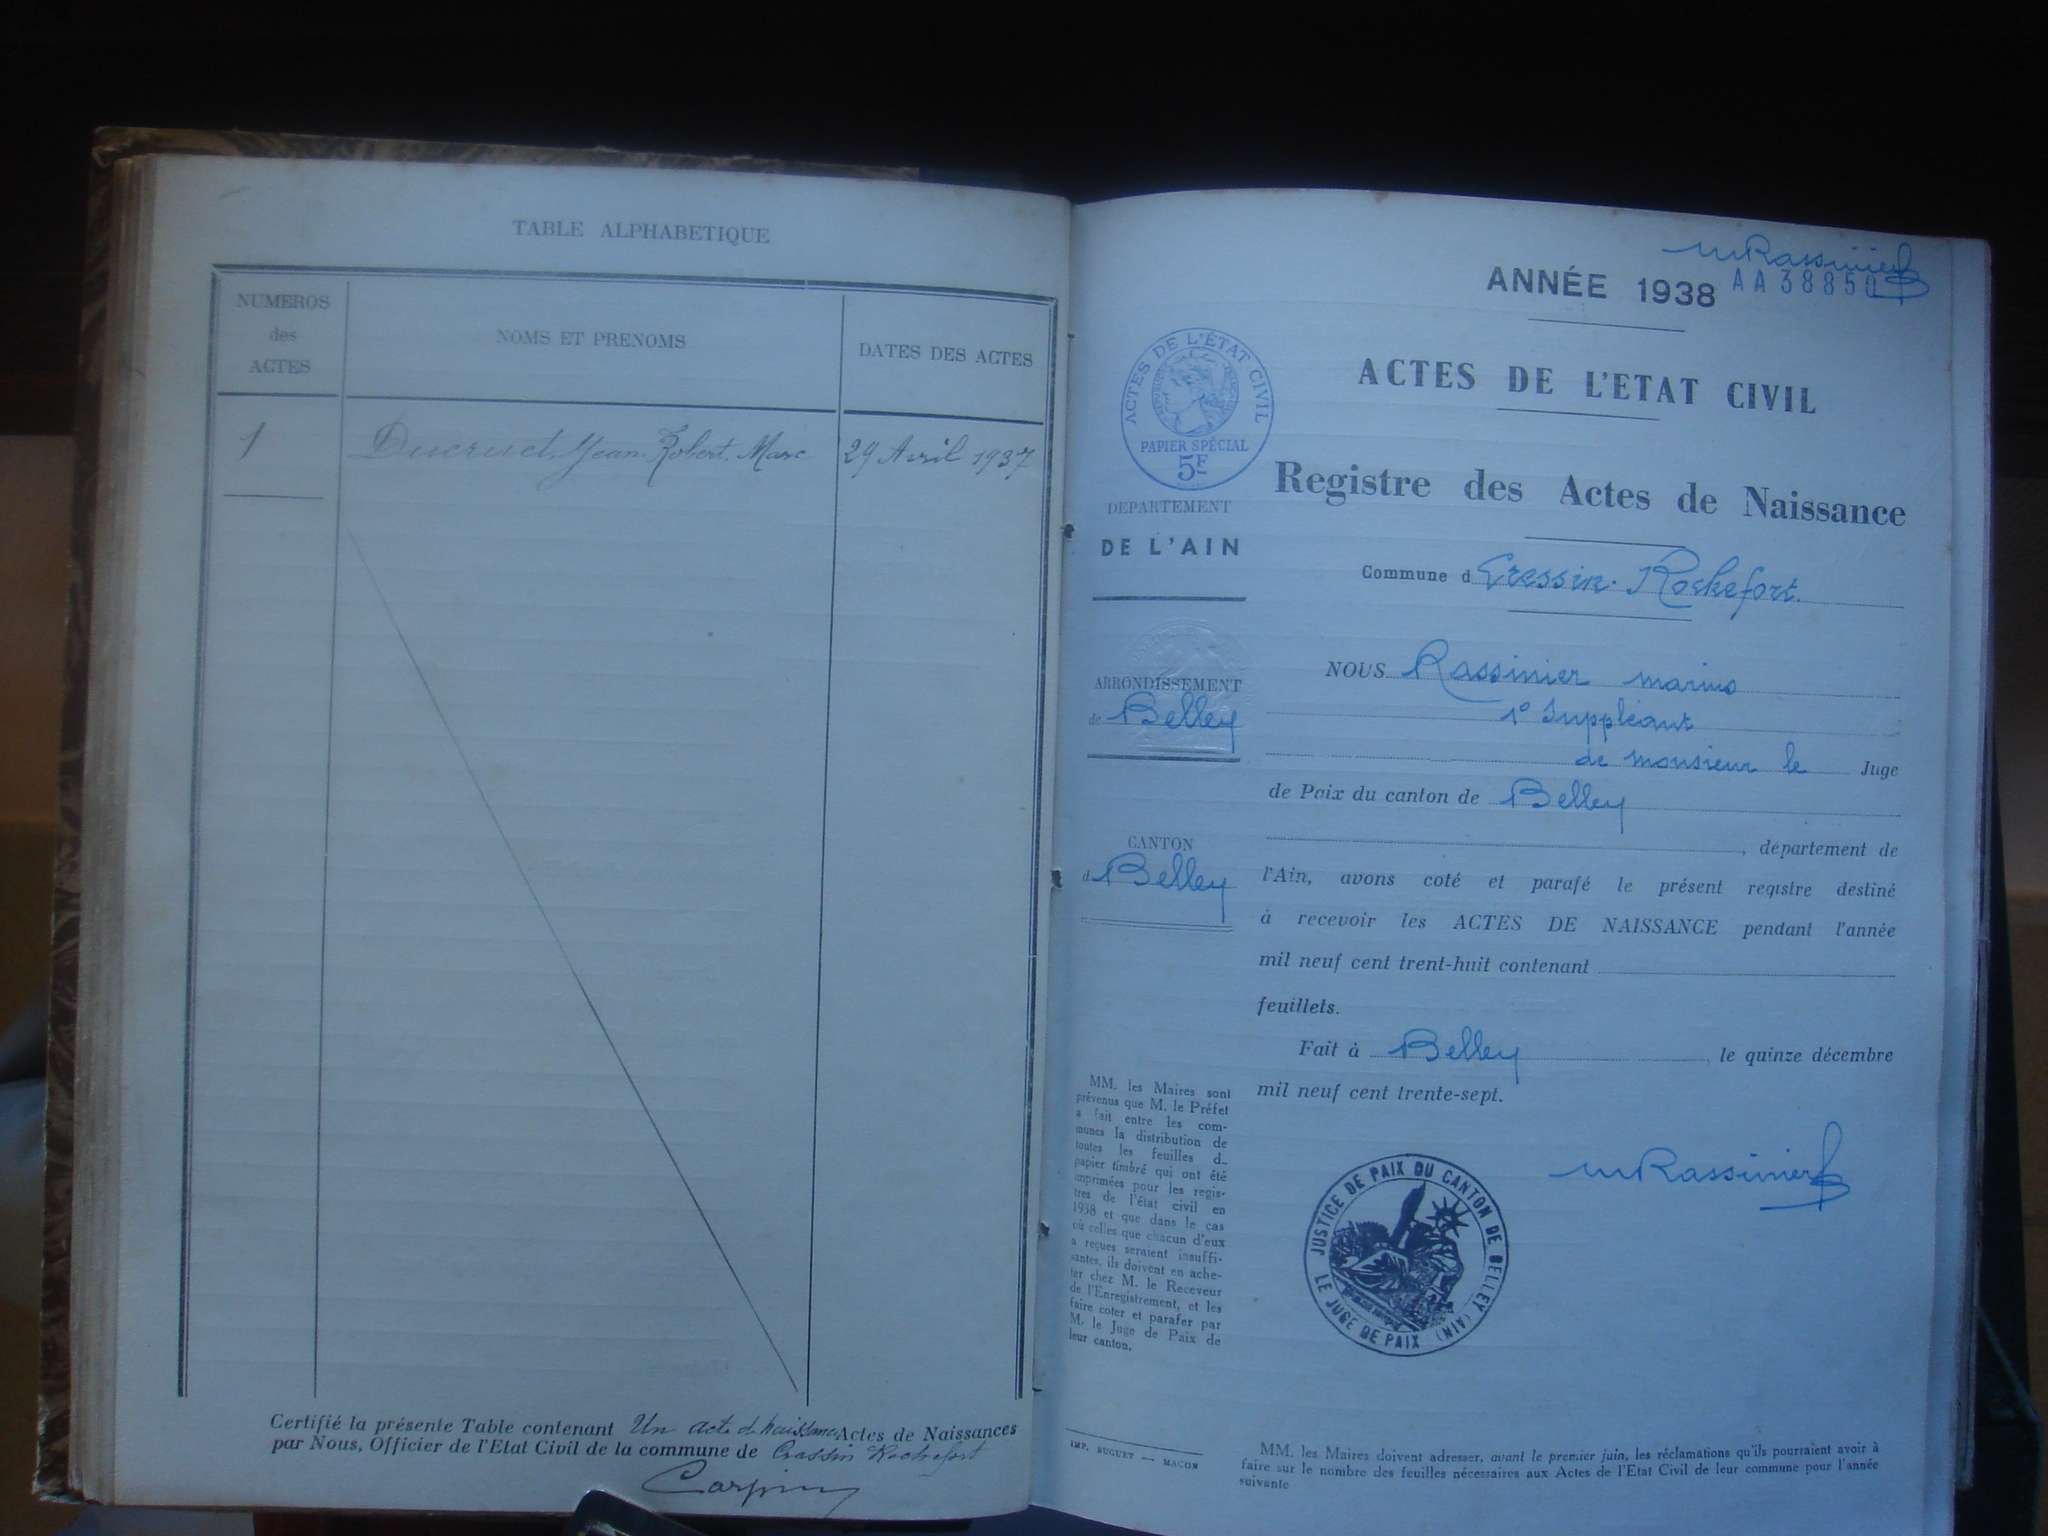 TABLE ALPHABETIQUE
NUMEROS
des
ACTES
NOMS ET PRENOMS
DATES DES ACTES
1 Ducruet Jean Robert Marc 29 Avril 1937
Certifié la présente Table contenant Un acte d naissance Actes de Naissances
par Nous, Officier de l'Etat Civil de la commune de Cressin Rochefort
mRassinier
AA 38850
ANNÉE 1938
ACTES DE L'ÉTAT CIVIL
RÉPUBLIQUE FRANÇAISE
PAPIER SPÉCIAL
5F
ACTES DE L'ETAT CIVIL
Registre des Actes de Naissance
DEPARTEMENT
DE L'AIN
Commune d Cressin-Rochefort.
ARRONDISSEMENT
de Belley
CANTON
d Belley
NOUS Rassinier marius
1° Suppléant
de monsieur le Juge
de Paix du canton de Belley
, département de
l'Ain, avons coté et parafé le présent registre destiné
à recevoir les ACTES DE NAISSANCE pendant l'année
mil neuf cent trent-huit contenant
feuillets.
Fait à Belley, le quinze décembre
mil neuf cent trente-sept.
mRassinier
JUSTICE DE PAIX DU CANTON DE BELLEY (AIN)
LE JUGE DE PAIX
MM. les Maires sont
prévenus que M. le Préfet
a fait entre les com-
munes la distribution de
toutes les feuilles d_
papier timbré qui ont été
imprimées pour les regis-
tres de l'état civil en
1938 et que dans le cas
où celles que chacun d'eux
a reçues seraient insuffi-
santes, ils doivent en ache-
ter chez M. le Receveur
de l'Enregistrement, et les
faire coter et parafer par
M. le Juge de Paix de
leur canton.
IMP. BUGUET — MACON
MM. les Maires doivent adresser, avant le premier juin, les réclamations qu'ils pourraient avoir à
faire sur le nombre des feuilles nécessaires aux Actes de l'Etat Civil de leur commune pour l'année
suivante